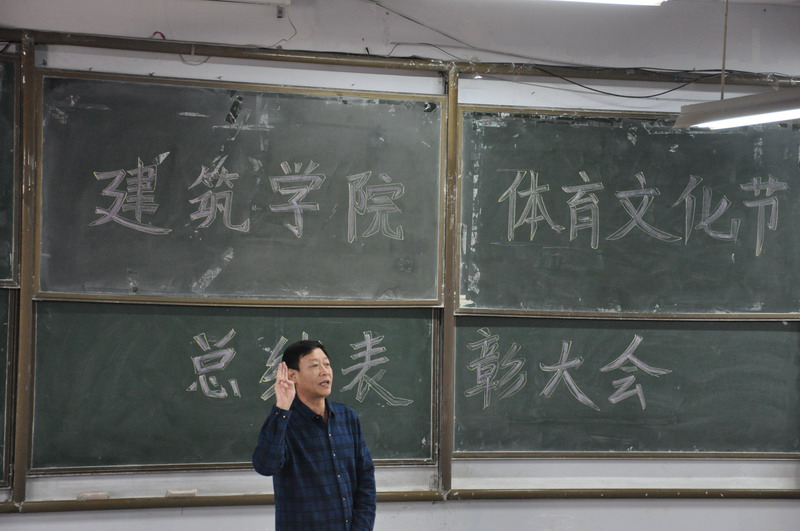 建筑学院 体育文化节
总结表彰大会